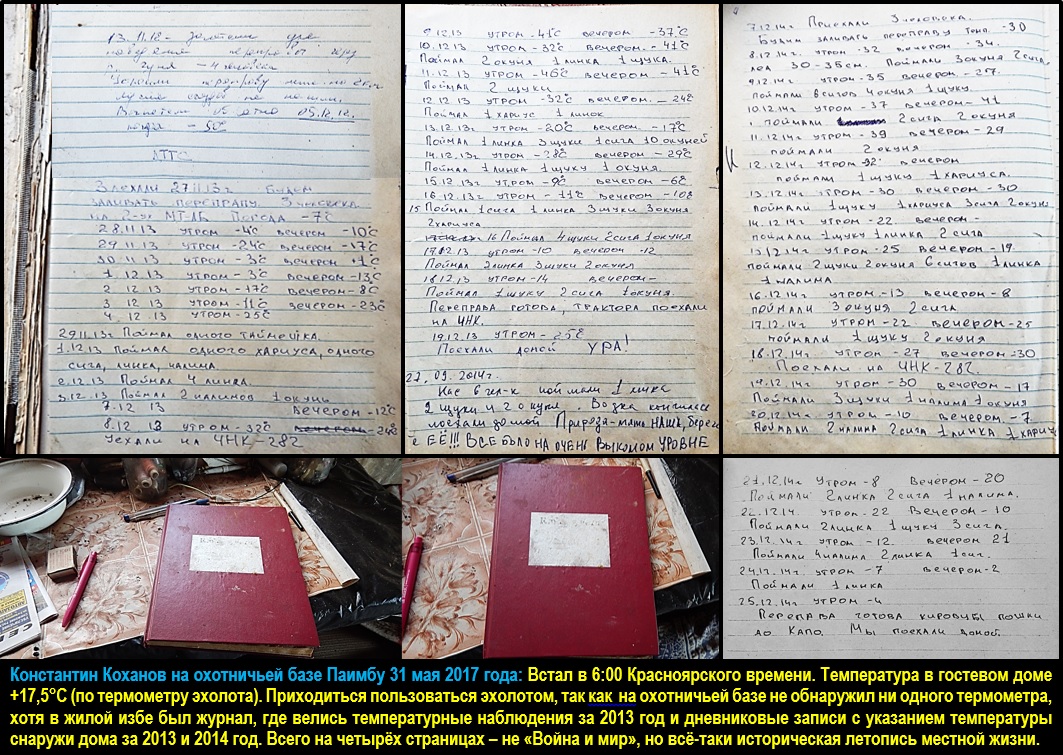 13.11.18
Заехали 27.11.13г будем
заливать переправу 3 человека
на 2-ух МТ-ЛБ Погода -7°С
28.11.13 утром -4°С вечером -10°С
29.11.13 утром -24С вечером -17°С
30.11.13 утром -3°С вечером +1°С
1.12.13 утром -3°С вечером -13С
2.12.13 утром -17С вечером -8С
3.12.13 утром -11С вечером -23С
4.12.13 утром -25С
29.11.13г. Поймал одного таймешка.
1.12.13 Поймал одного хариуса, одного
сига, линка, налима.
2.12.13 Поймал 4 линка.
3.12.13 Поймал 2 налимов 1 окуня
7.12 13 вечером -12°С
8.12 13 утром -32С вечером -24С
Уехали на ЧНК-282
9.12.13 утром -41°С вечером -37°С
10.12.13 утром -32°С вечером -41°С
Поймал 2 окуня 1 линка 1 щука.
11.12.13 утром -46°С вечером -41°С
Поймал 2 щуки
12.12.13 утром -32°С вечером -24С
Поймал 1 хариус 1 линок
13.12.13г утром -20°С вечером -17°С
Поймал 1 линка 3 щуки 1 сига 10 окуней
14.12.13г утром -28°С вечером -29°С
Поймал 1 линка 1 щуку 1 окуня.
15.12.13 утром -9С вечером -6С
16.12.13г утром -11С вечером -10С
15 Поймал 1 сига 1 линка 3 щуки 3 окуня
2 хариуса
16 Поймал 4 щуки 2 сига 1 окуня
17.12.13 утром -10 вечером -12
Поймал 2 линка 3 щуки 2 окуня
18.12.13 утром -14 вечером-
Поймал 1 щуку 2 сига 1 окуня.
Переправа готова, трактора поехали
на ЧНК.
19.12.13 утром -25С
Поехали домой УРА!
27.09.2014г.
Нас 6 чел-к поймали 1 линка
2 щуки и 2 окуня. Возка кончилась
поехали домой Природа-мать НАША, береги
ЕЁ!!! ВСЁ БЫЛО НА ОЧЕНЬ ВЫСОКОМ УРОВНЕ
7.12.14г Приехали 3 человека.
Будим заливать переправу Темп. -30
8.12.14г. утром -32 вечером -34.
лёд 30-35см. Поймали 3 окуня 2 сига
9.12.14г утром -35 вечером -27.
поймали 6 сигов 4 окуня 1 щуку.
10.12.14г утром -37 вечером -41
поймали 2 сига 2 окуня
11.12.14г утром -39 вечером -29
поймали 2 окуня
12.12.14г утром -32 вечером
поймали 1 щуку 1 хариуса.
13.12.14г утром -30 вечером -30
поймали 1 щуку 1 хариуса 3 сига 2 окуня
14.12.14г утром -22 вечером -
поймали 1 щуку 1 линка 2 сига
15.12.14г утром -25 вечером -19
поймали 2 щуки 2 окуня 6 сигов 1 линка
1 налима
16.12.14г утром -13 вечером -8
поймали 3 окуня 2 сига
17.12.14г утром -22 вечером -25
поймали 1 щуку 2 окуня
18.12.14г утром -27 вечером -30
Поехали на ЧНК-282.
19.12.14г утром -30 вечером -17
Поймали 3 щуки 1 налима 1 окуня
20.12.14г утром -10 вечером -7
Поймали 2 налима 2 сига 1 линка 1 хариус
21.12.14г утром -8 вечером -20
Поймали 2 линка 2 сига 1 налима.
22.12.14г. утром -22 вечером -10
Поймали 2 линка 1 щуку 3 сига.
23.12.14г утром -12. вечером 21
Поймали 4 налима 2 линка 1 сиг.
24.12.14г утром -7 вечером -2
Поймали 1 линка
25.12.14г утром -4
Переправа готова кировцы пошли
до Капо. Мы поехали домой.
Константин Коханов на охотничьей базе Паимбу 31 мая 2017 года: Встал в 6:00 Красноярского времени. Температура в гостевом доме
+17,5°С (по термометру эхолота). Приходиться пользоваться эхолотом, так как на охотничьей базе не обнаружил ни одного термометра,
хотя в жилой избе был журнал, где велись температурные наблюдения за 2013 год и дневниковые записи с указанием температуры
снаружи дома за 2013 и 2014 год. Всего на четырёх страницах – не «Война и мир», но всё-таки историческая летопись местной жизни.